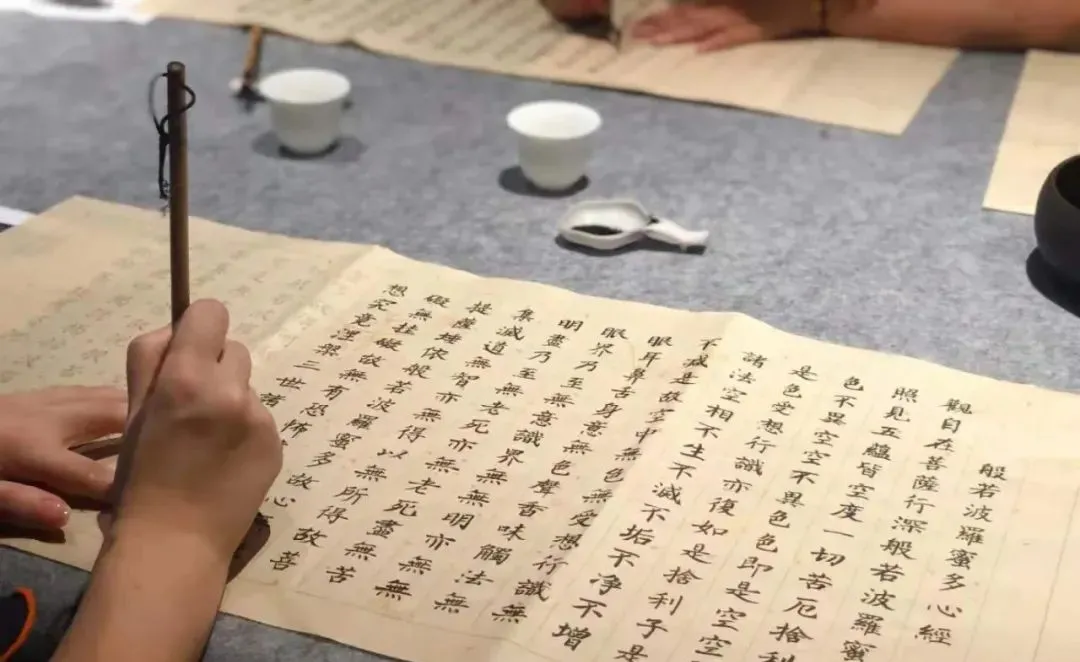 般若波羅蜜多心經
觀自在菩薩行深般若波羅蜜
照見五蘊皆空度一切苦厄捨
色不異空空不異色色即是空空
是色受想行識亦復如是捨利子是
諸法空相不生不滅不垢不净不增
不減是故空中無色無受想行識無
眼耳鼻舌身意無色聲香味觸法無
眼界乃至無意識界無無明亦無
明盡乃至無老死亦無老死盡無苦
集滅道無智亦無得以無所得故菩
提薩埵依般若波羅蜜多故心
礙無挂礙故無有恐怖
想究竟涅槃三世諸